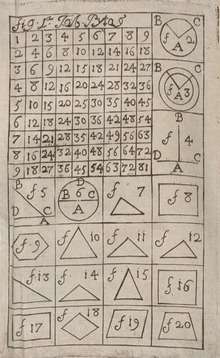 B C
2
A
1 2 3 4 5 6 7 8 9
2 4 6 8 10 12 14 16 18
3 6 9 12 15 18 21 24 27
4 8 12 16 20 24 28 32 36
5 10 15 20 25 30 35 40 45
6 12 18 24 30 36 42 48 54
7 14 21 28 35 42 49 56 63
8 16 24 32 40 48 56 64 72
9 18 27 36 45 54 63 72 81
B C
f 3
A
B
f 4
D A C
B
f 5
D C
A
D
B 6 C
A
f 7
f 8
f 9
f 10
f 11
f 12
f 13
f 14
f 15
f 16
f 17
f 18
f 19
f 20